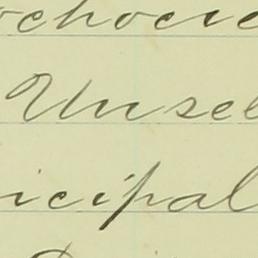 ochocie
Unsel
icipal